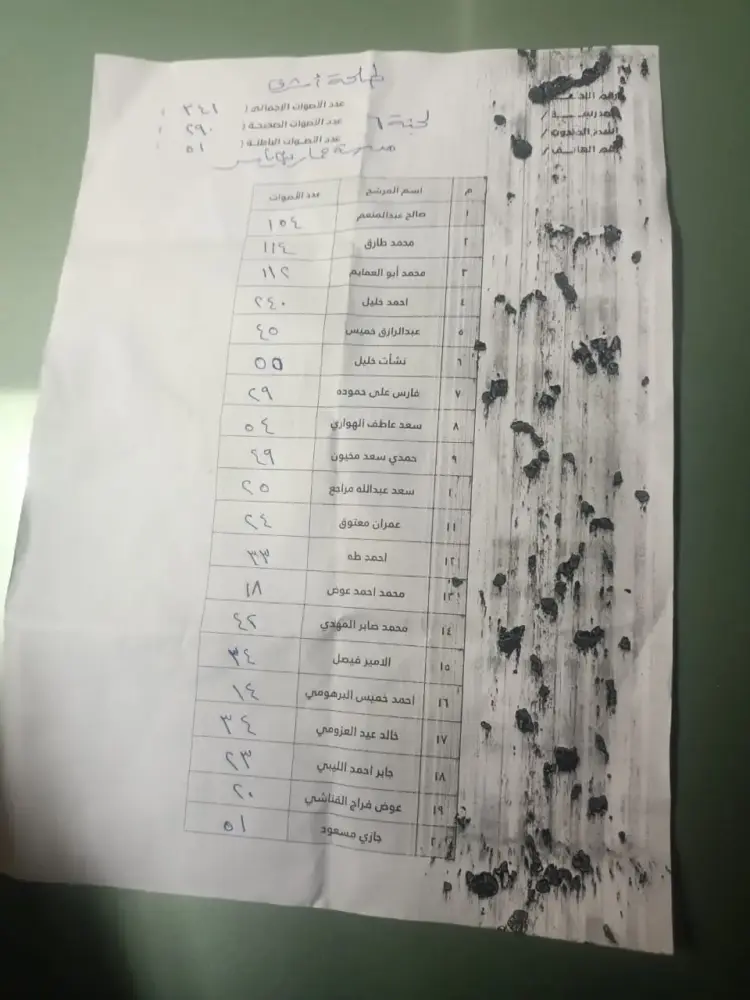 عدد الأصوات الإجمالى ( ٣٤١ )
لجنة ٦
عدد الأصوات الصحيحة ( ٢٩٠ )
عدد الأصوات الباطلة ( ٥١ )
م اسم المرشح عدد الأصوات
١ صالح عبدالمنعم ١٥٤
٢ محمد طارق ١١٤
٣ محمد أبو العمايم ١١٢
٤ احمد خليل ٢٤٠
٥ عبدالرازق خميس ٤٥
٦ نشأت خليل ٥٥
٧ فارس على حموده ٢٩
٨ سعد عاطف الهواري ٥٤
٩ حمدي سعد مخيون ٤٩
١٠ سعد عبدالله مراجع ٢٥
١١ عمران معتوق ٢٤
١٢ احمد طه ٣٣
١٣ محمد احمد عوض ١٨
١٤ محمد صابر المهدي ٤٢
١٥ الامير فيصل ٣٤
١٦ احمد خميس البرهومي ١٤
١٧ خالد عيد العزومي ٣٤
١٨ جابر احمد الليبي ٢٣
١٩ عوض فراج القناشي ٢٠
٢٠ جازي مسعود ٥١